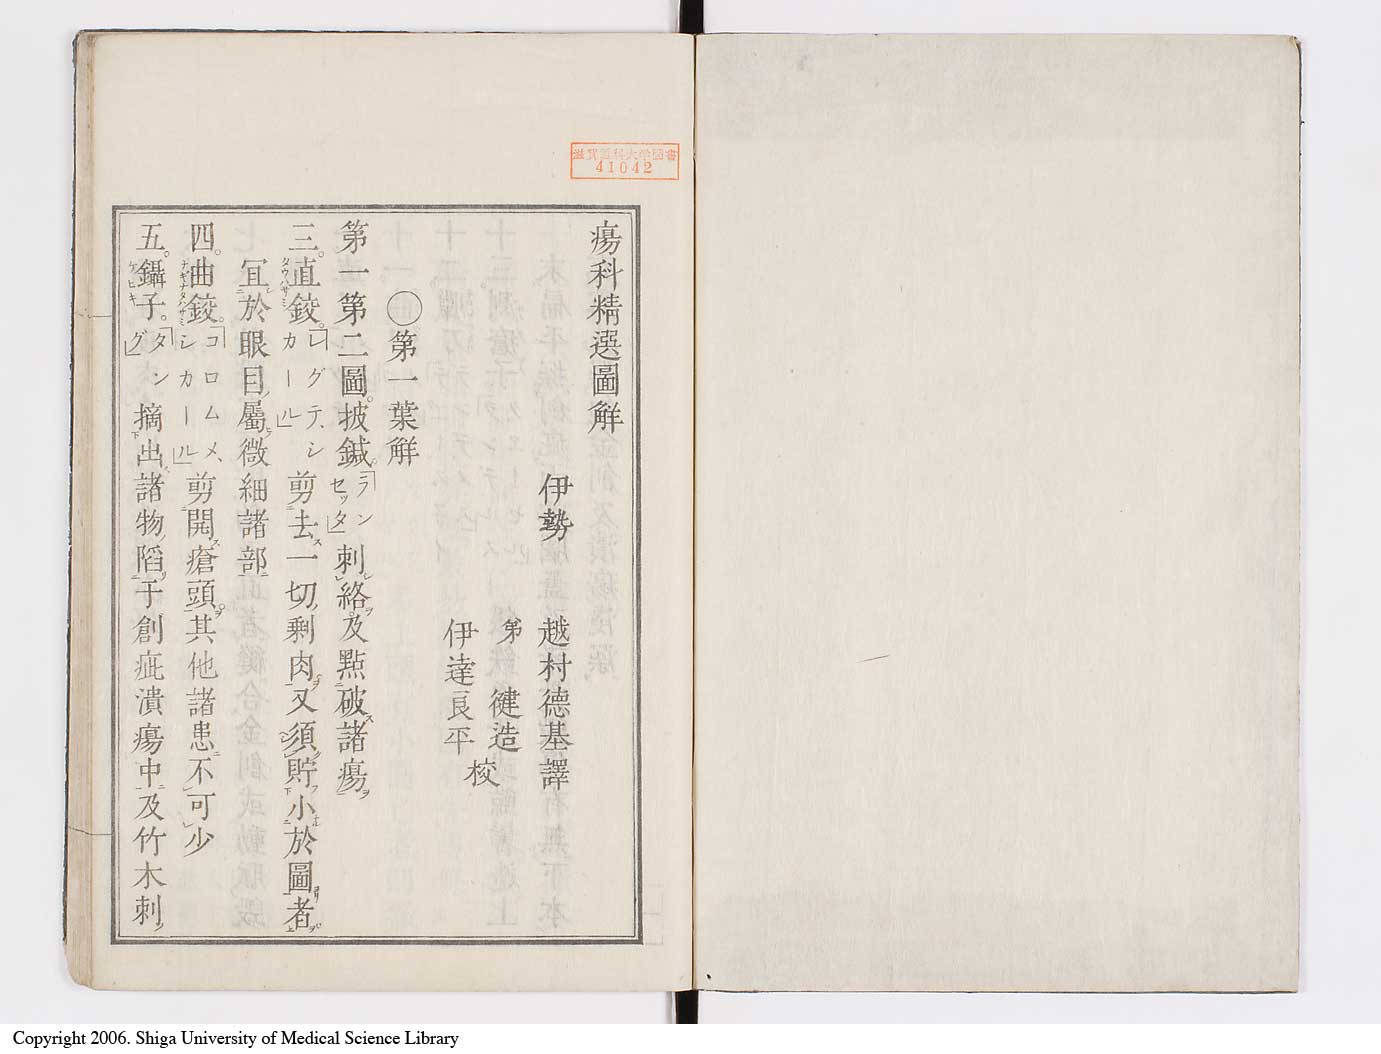 滋賀医科大学図書
41042
瘍科精選圖解
伊勢 越村德基譯
弟 健造
伊達良平 校
〇第一葉解
第一第二圖披鍼「ランセッタ」刺絡及點破諸瘍
三直鋏「レグテ、シカール」剪去一切剩肉又須貯小於圖者
冝於眼目屬微細諸部
四曲鋏「コロムメ、シカール」剪開瘡頭其他諸患不可少
五鑷子「タング」摘出諸物陷于創疵潰瘍中及竹木刺
Copyright 2006. Shiga University of Medical Science Library